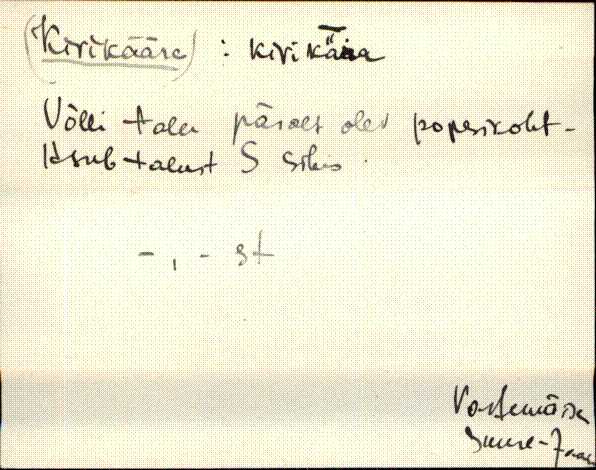 (Kivikääre) : kivikǟra
Võlli talu päralt olev popsikoht.
Asub talust S sihis.
-, - st
Vastemõisa
Suure-Jaani